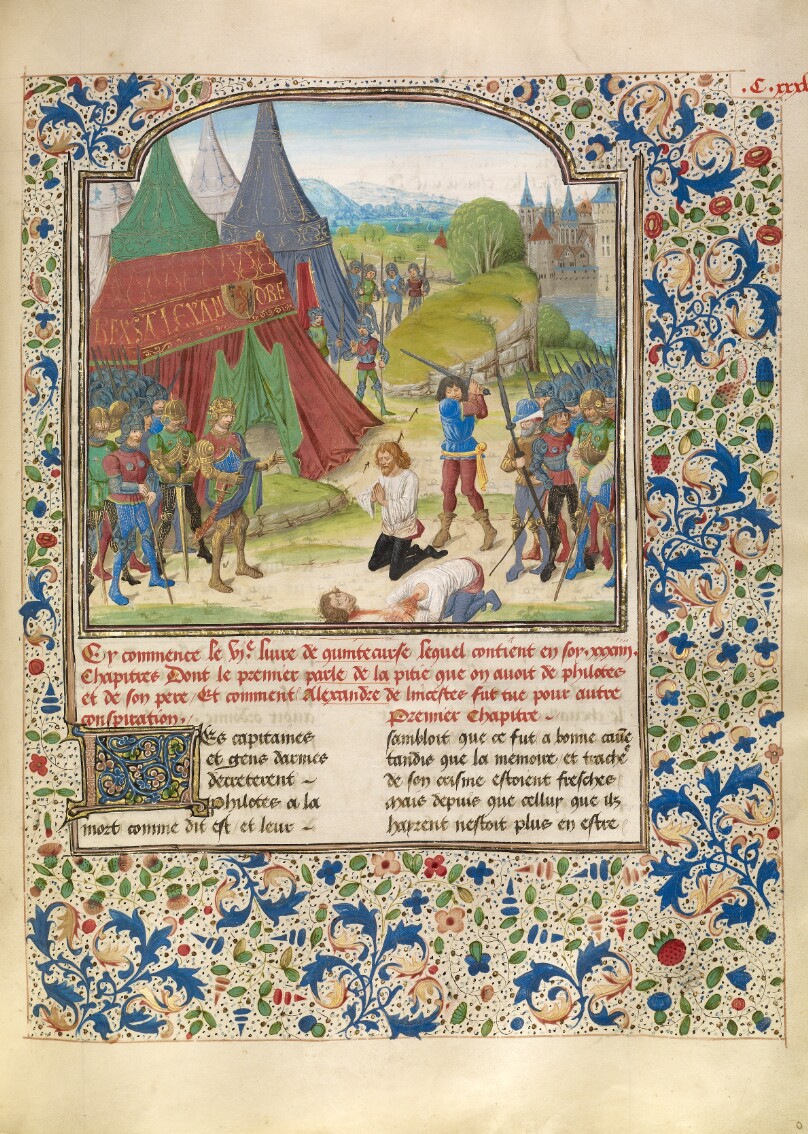 .C.xxxl
REX ALEXAN DRE
Cy commence le vje. liure de quintecurse lequel contient en soy. xxxiiij.
Chapitres Dont le premier parle de la pitie que on auoit de philotes
et de son pere / Et comment Alexandre de lincestes fut tue pour autre
conspiration.
Premier Chapitre
Les capitaines
et gens darmes
decreterent
philotes a la
mort comme dit est / et leur
sambloit que ce fut a bonne cause
tandis que la memoire et trache
de son crisme estoient fresches
Mais depuis que cellui que ilz
hayrent nestoit plus en estre